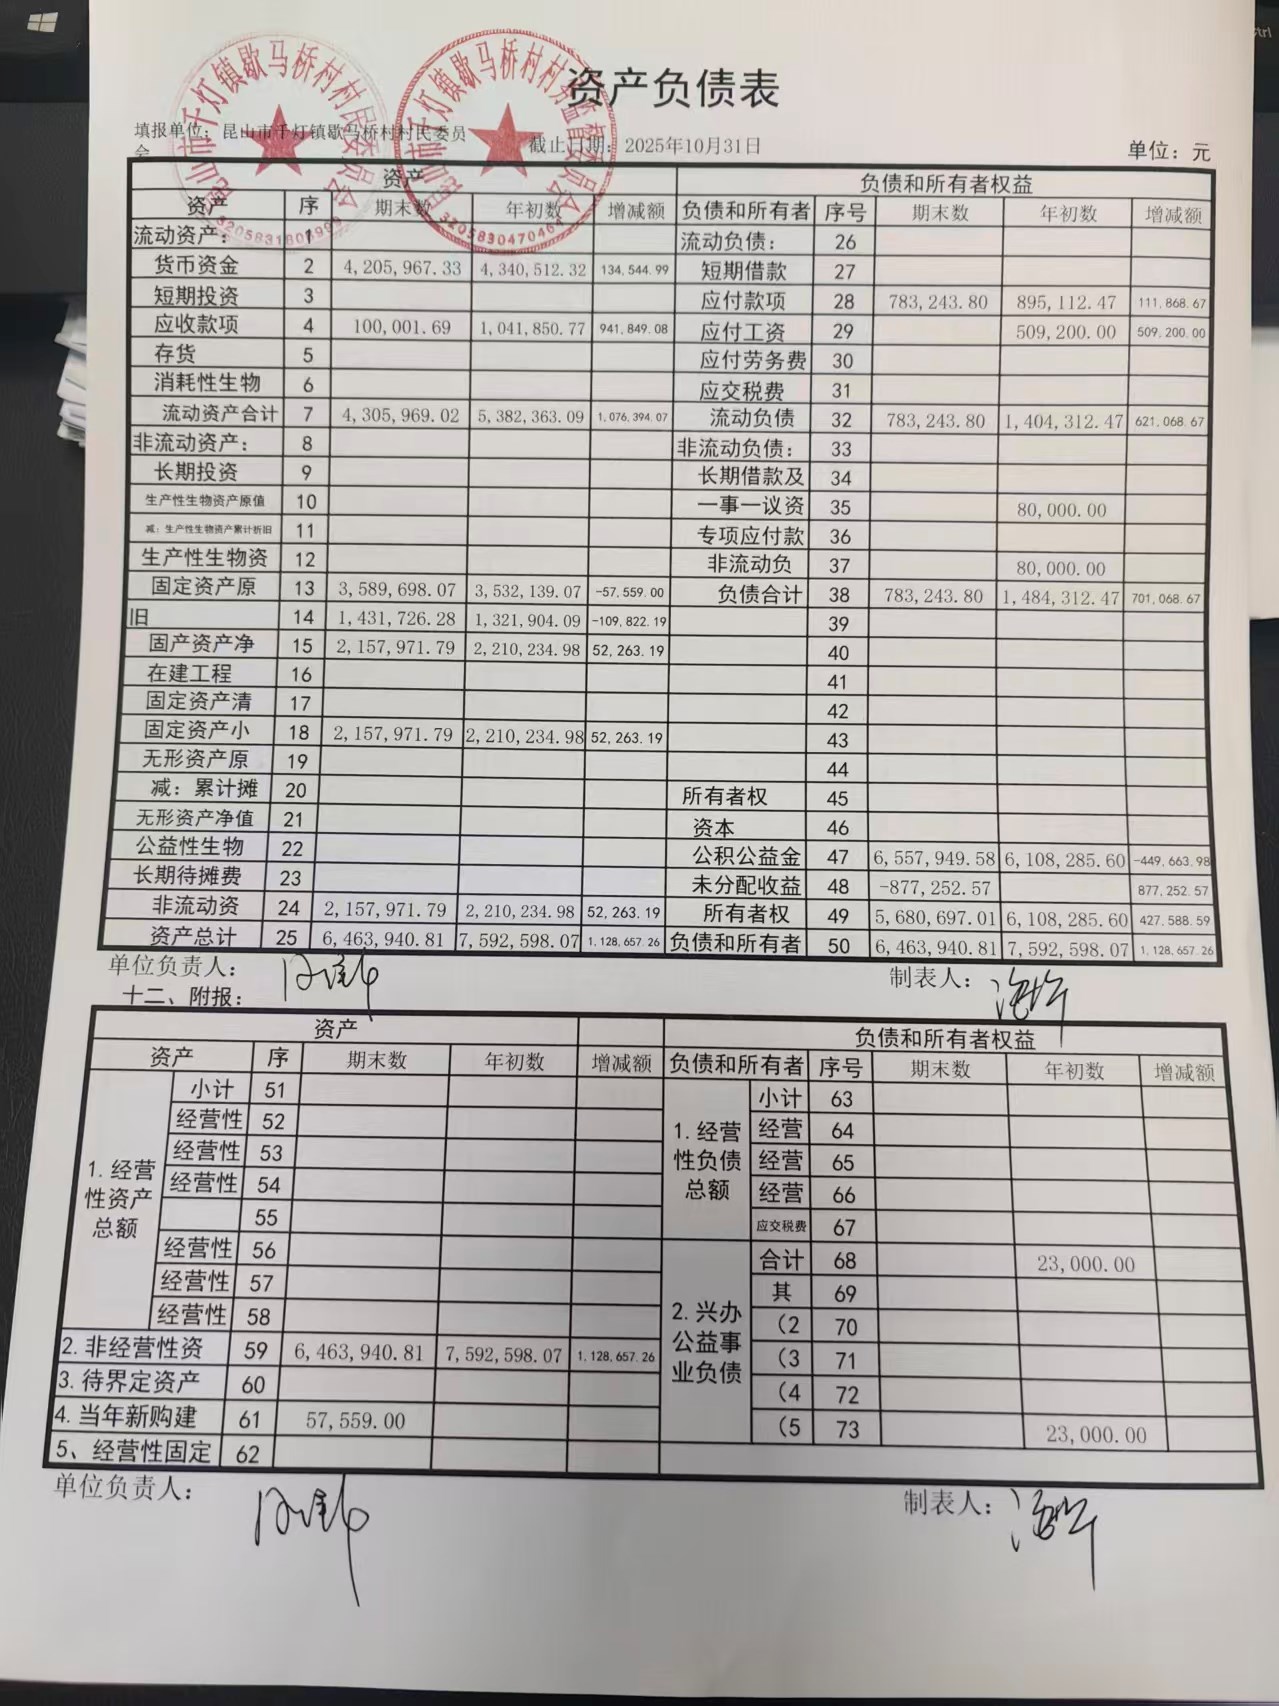 资产负债表
填报单位：昆山市千灯镇歇马桥村村民委员
会 截止日期：2025年10月31日 单位：元
昆山市千灯镇歇马桥村村民委员会
昆山市千灯镇歇马桥村村务监督委员会
资产 负债和所有者权益
资产 序 期末数 年初数 增减额 负债和所有者 序号 期末数 年初数 增减额
流动资产： 1 流动负债： 26
货币资金 2 4,205,967.33 4,340,512.32 134,544.99 短期借款 27
短期投资 3 应付款项 28 783,243.80 895,112.47 111,868.67
应收款项 4 100,001.69 1,041,850.77 941,849.08 应付工资 29 509,200.00 509,200.00
存货 5 应付劳务费 30
消耗性生物 6 应交税费 31
流动资产合计 7 4,305,969.02 5,382,363.09 1,076,394.07 流动负债 32 783,243.80 1,404,312.47 621,068.67
非流动资产： 8 非流动负债： 33
长期投资 9 长期借款及 34
生产性生物资产原值 10 一事一议资 35 80,000.00
减：生产性生物资产累计折旧 11 专项应付款 36
生产性生物资 12 非流动负 37 80,000.00
固定资产原 13 3,589,698.07 3,532,139.07 -57,559.00 负债合计 38 783,243.80 1,484,312.47 701,068.67
旧 14 1,431,726.28 1,321,904.09 -109,822.19 39
固产资产净 15 2,157,971.79 2,210,234.98 52,263.19 40
在建工程 16 41
固定资产清 17 42
固定资产小 18 2,157,971.79 2,210,234.98 52,263.19 43
无形资产原 19 44
减：累计摊 20 所有者权 45
无形资产净值 21 资本 46
公益性生物 22 公积公益金 47 6,557,949.58 6,108,285.60 -449,663.98
长期待摊费 23 未分配收益 48 -877,252.57 877,252.57
非流动资 24 2,157,971.79 2,210,234.98 52,263.19 所有者权 49 5,680,697.01 6,108,285.60 427,588.59
资产总计 25 6,463,940.81 7,592,598.07 1,128,657.26 负债和所有者 50 6,463,940.81 7,592,598.07 1,128,657.26
单位负责人： 制表人：
十二、附报：
资产 负债和所有者权益
资产 序 期末数 年初数 增减额 负债和所有者 序号 期末数 年初数 增减额
1.经营性资产总额 小计 51 1.经营性负债总额 小计 63
经营性 52 经营 64
经营性 53 经营 65
经营性 54 经营 66
55 应交税费 67
经营性 56 2.兴办公益事业负债 合计 68 23,000.00
经营性 57 其 69
经营性 58 （2 70
2.非经营性资 59 6,463,940.81 7,592,598.07 1,128,657.26 （3 71
3.待界定资产 60 （4 72
4.当年新购建 61 57,559.00 （5 73 23,000.00
5、经营性固定 62
单位负责人： 制表人：